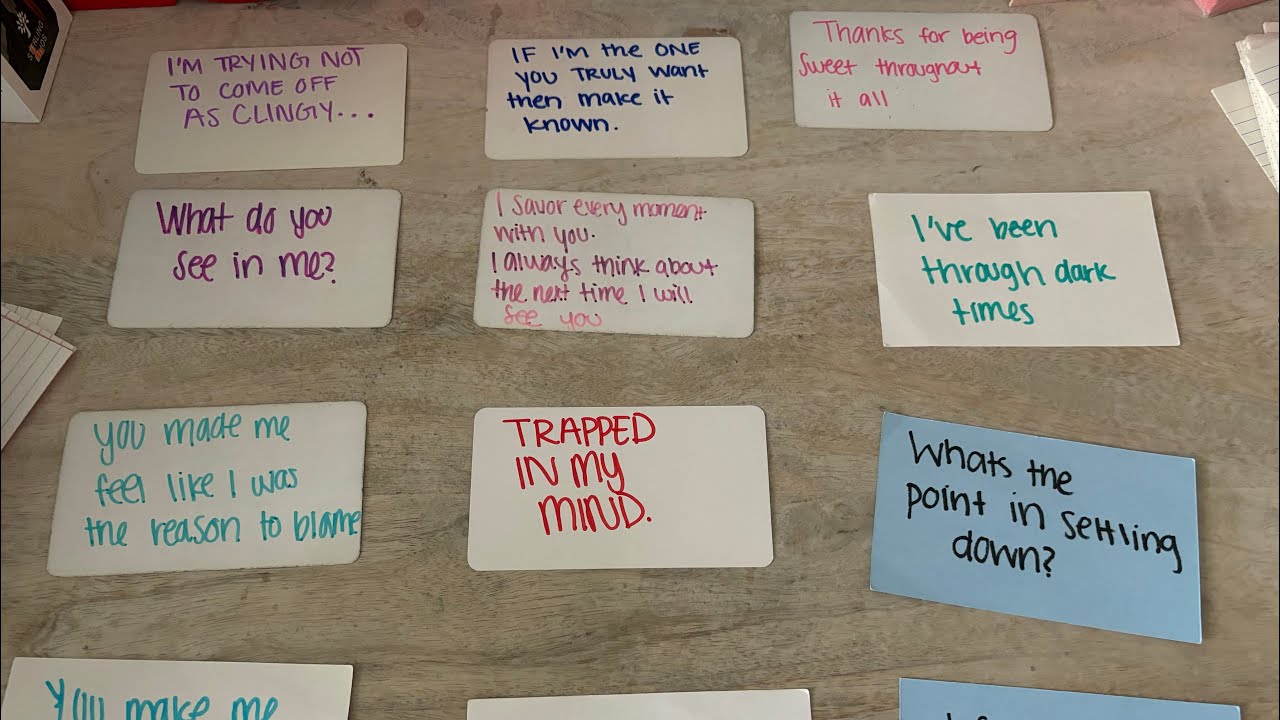 I'M TRYING NOT
TO COME OFF
AS CLINGY...
IF I'M the ONE
YOU TRULY want
then make it
known.
Thanks for being
Sweet throughout
it all
What do you
see in me?
I savor every moment
with you.
I always think about
the next time I will
see you
I've been
through dark
times
you made me
feel like I was
the reason to blame
TRAPPED
IN MY
MIND.
Whats the
point in settling
down?
You make me